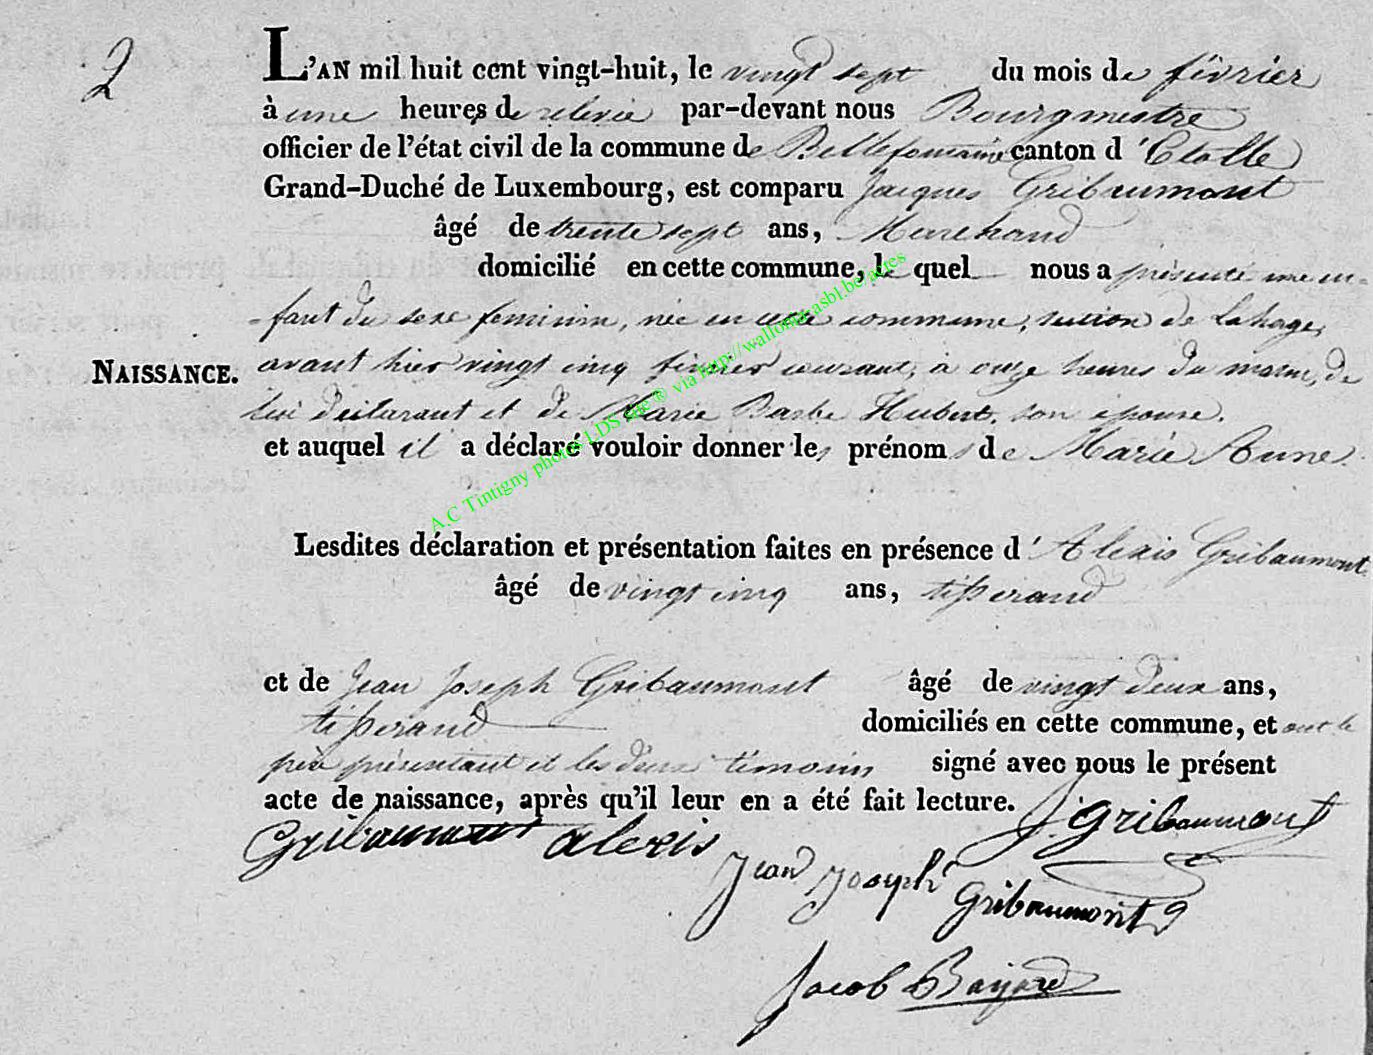 2
L'AN mil huit cent vingt-huit, le vingt sept du mois de février
à une heures de relevée par-devant nous Bourgmestre
officier de l'état civil de la commune de Bellefontaine canton d'Etalle
Grand-Duché de Luxembourg, est comparu Jacques Gribaumont
âgé de trente sept ans, Marchand
domicilié en cette commune, le quel nous a présenté une en-
-fant du sexe feminin, née en cette commune, section de Lahage,
NAISSANCE. avant hier vingt cinq février courant, à onze heures du matin, de
lui déclarant et de Marie Barbe Hubert, son épouse.
et auquel il a déclaré vouloir donner les prénoms de Marie Anne.
A.C Tintigny photos LDS faite ® via http://wallonia-asbl.be/actes
Lesdites déclaration et présentation faites en présence d'Alexis Gribaumont
âgé de vingt cinq ans, tisserand
et de Jean Joseph Gribaumont âgé de vingt deux ans,
tisserand domiciliés en cette commune, et ont le
père présentant et les deux témoins signé avec nous le présent
acte de naissance, après qu'il leur en a été fait lecture.
J. Gribaumont
Gribaumont alexis
Jean Joseph Gribaumont
Jacob Bayard